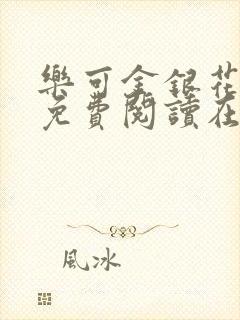 樂可金銀花
免費閱讀在
風冰